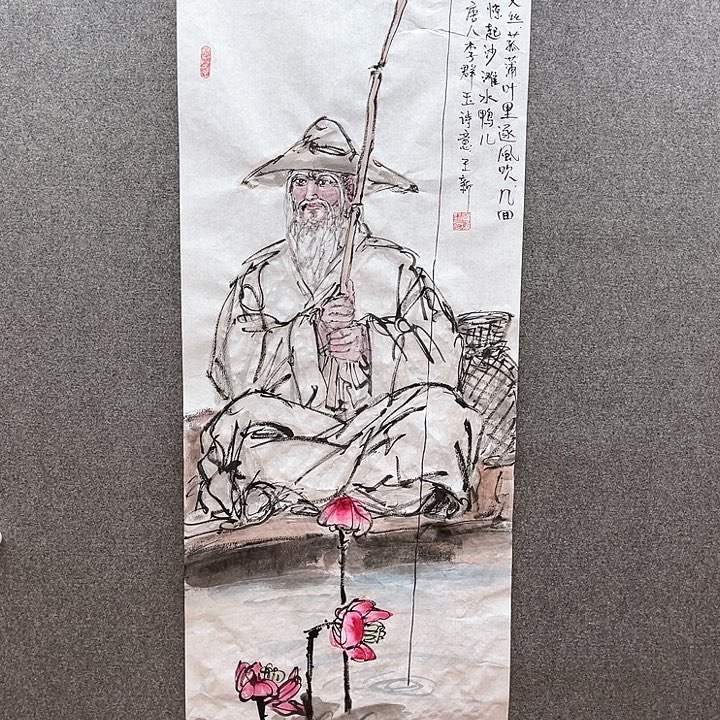 丈丝菰蒲叶里逐風吹.几囬
惊起沙滩水鸭儿
唐人李群玉诗意王新